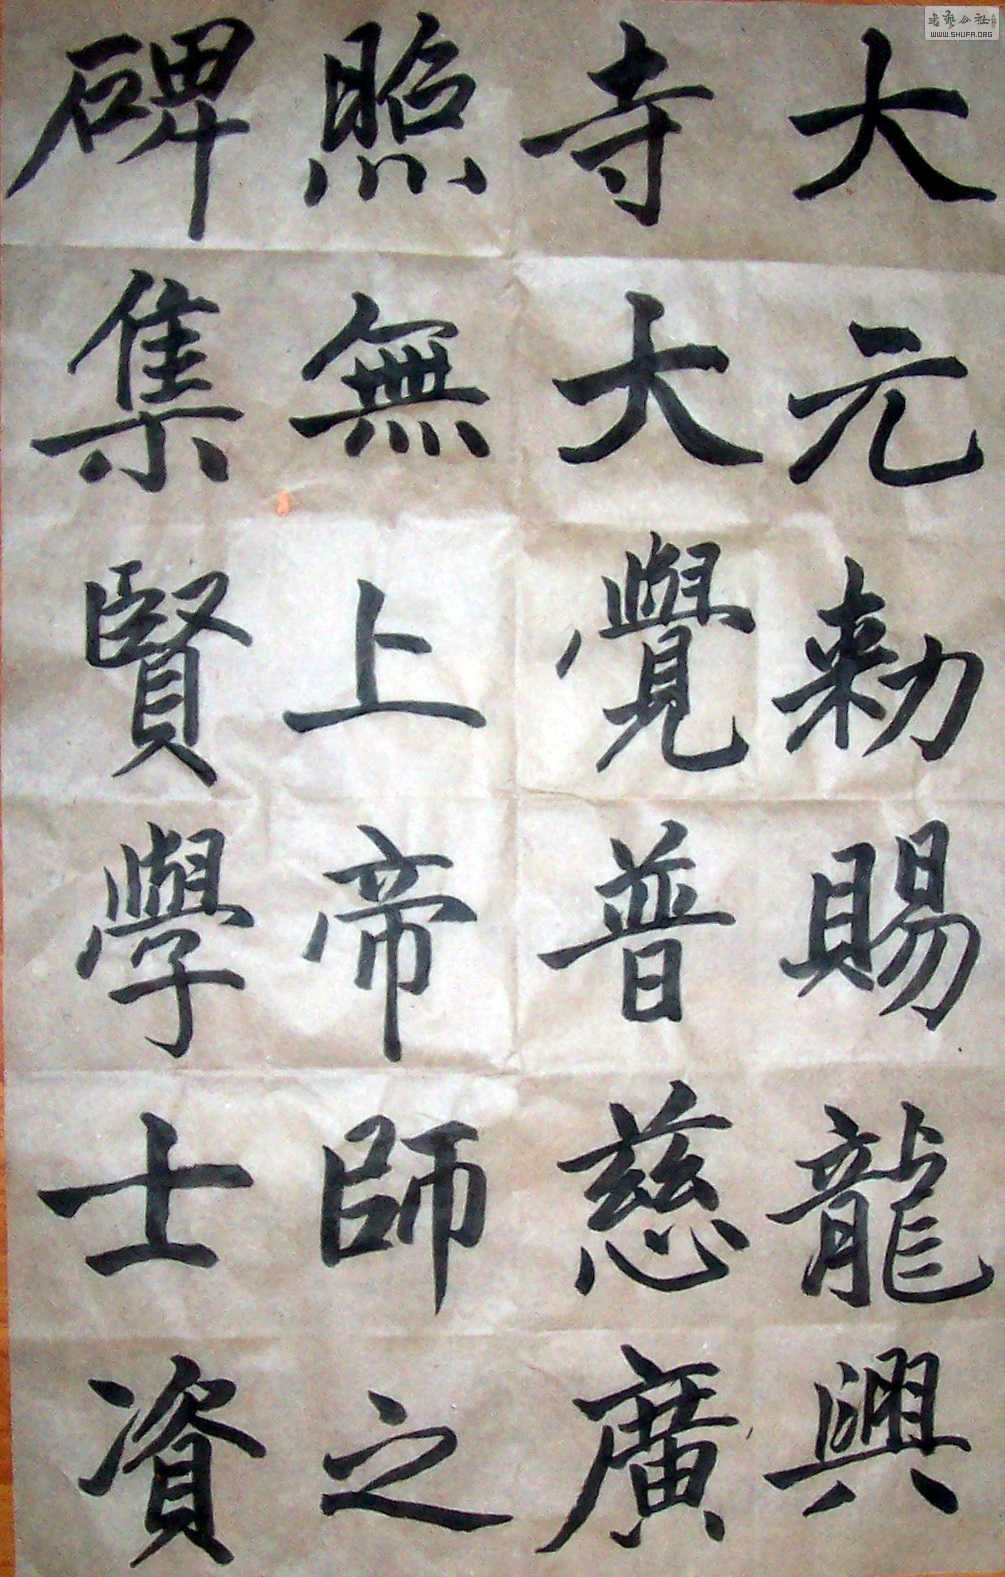 大元勑賜龍興
寺大覺普慈廣
照無上帝師之
碑集賢學士資
WWW.SHUFA.ORG